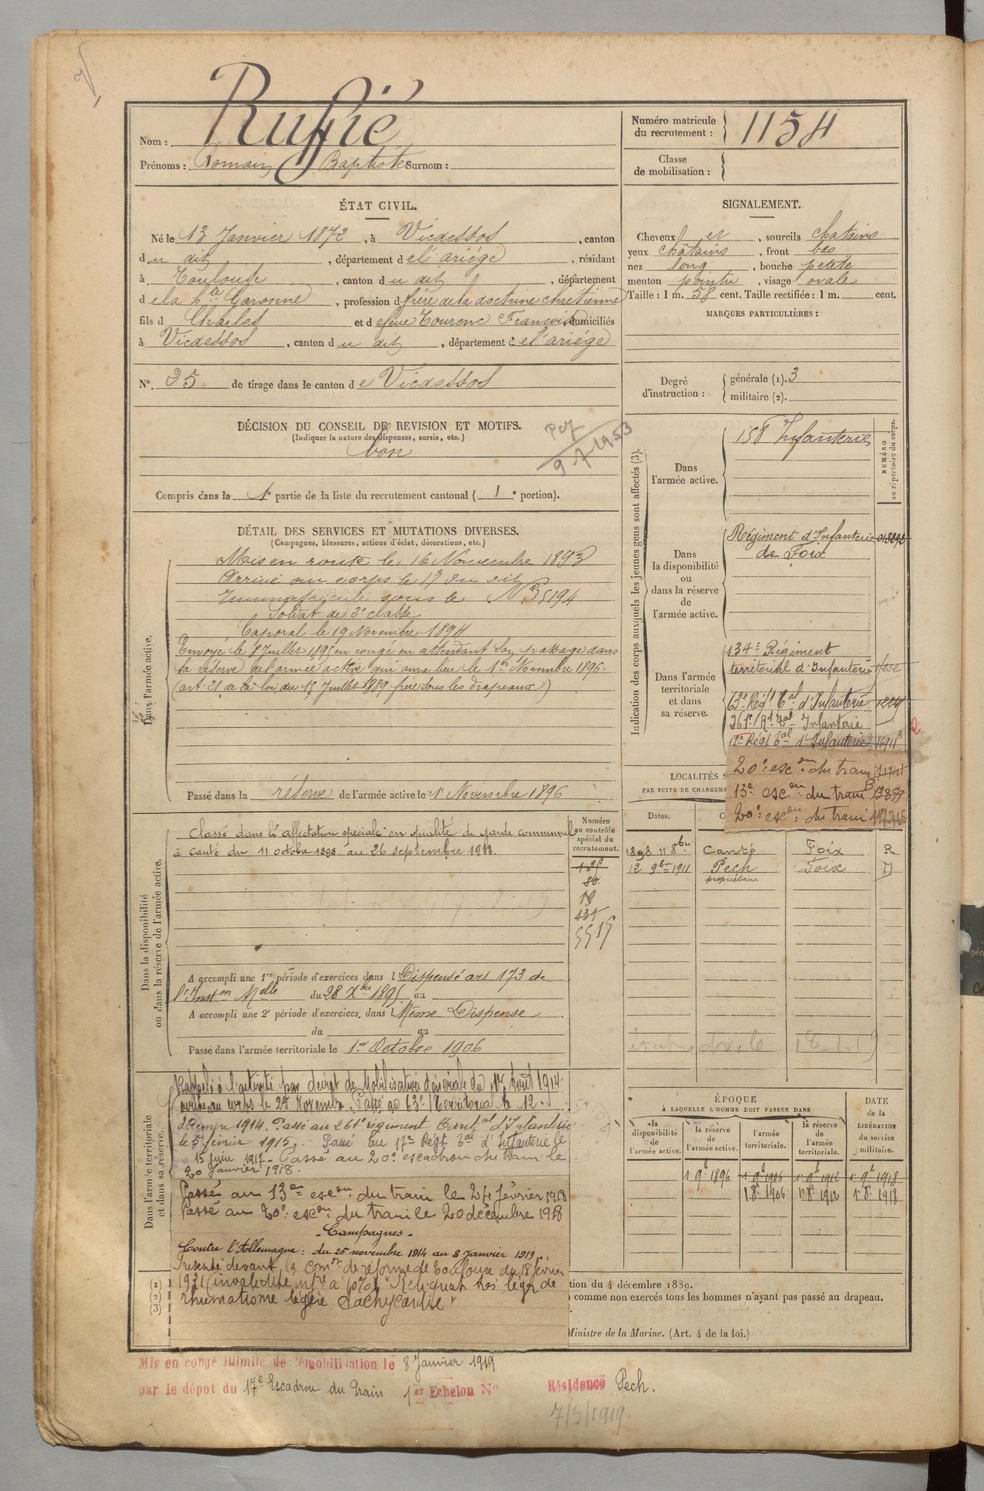 Ruffié
Nom :
Prénoms : Romain Baptiste Surnom :
Numéro matricule du recrutement : 1154
Classe de mobilisation :
ÉTAT CIVIL.
Né le 13 Janvier 1872, à Vicdessos, canton
du dit, département de l'ariége, résidant
à Toulouse, canton du dit, département
de la Hte Garonne, profession de frère de la doctrine chrétienne
fils de Charles et de feue Tourenc Françoise domiciliés
à Vicdessos, canton du dit, département de l'ariege
N° 25 de tirage dans le canton de Vicdessos
SIGNALEMENT.
Cheveux et, sourcils chatains
yeux châtains, front bas
nez long, bouche petite
menton pointu, visage ovale
Taille : 1 m. 58 cent. Taille rectifiée : 1 m. cent.
MARQUES PARTICULIÈRES :
Degré d'instruction : générale (1). 3
militaire (2).
DÉCISION DU CONSEIL DE REVISION ET MOTIFS.
(Indiquer la nature des dispenses, sursis, etc.)
bon
9.7.1953
Compris dans la 1e partie de la liste du recrutement cantonal (1e portion).
DÉTAIL DES SERVICES ET MUTATIONS DIVERSES.
(Campagnes, blessures, actions d'éclat, décorations, etc.)
Dans l'armée active.
Mis en route le 16 Novembre 1893
Arrivé au corps le 17 du dit
Immatriculé sous le N° 5194
Soldat de 2e classe
Caporal le 19 Novembre 1894
Envoyé le 8 Juillet 1895 en congé en attendant son passage dans
la réserve de l'armée active qui aura lieu le 1er Novembre 1896.
(art 21 de la loi du 15 Juillet 1889 frère sous les drapeaux)
Passé dans la réserve de l'armée active le 1er Novembre 1896
Indication des corps auxquels les jeunes gens sont affectés (3).
NUMÉRO au répertoire du corps.
Dans l'armée active.
158 Infanterie
Dans la disponibilité ou dans la réserve de l'armée active.
Régiment d'Infanterie
de Foix
Dans l'armée territoriale et dans sa réserve.
134e Régiment
territorial d'Infanterie
63e Régt Tal d'Infanterie
261e Rt Tal Infanterie
17e Régt Tal d'Infanterie
20e escon du train
13e escon du train
20e escon du train
Dans la disponibilité ou dans la réserve de l'armée active.
Classé dans l'affectation spéciale en qualité de garde communal
à Canté du 11 octobre 1898 au 26 septembre 1911.
Numéro au contrôle spécial du recrutement.
A accompli une 1re période d'exercices dans l Dispensé art 173 de
l'Inston Melle du 28 Xbre 1895 au
A accompli une 2e période d'exercices dans Même Dispense
du au
Passé dans l'armée territoriale le 1er Octobre 1906
LOCALITÉS
PAR SUITE DE CHANGEM
Dates.
1898 11 8bre Canté Foix R
12 9bre 1911 Pech Foix D
propriétaire
Dans l'armée territoriale et dans sa réserve.
Rappelé à l'activité par décret de Mobilisation Générale du 1er Août 1914.
arrivé au corps le 25 Novembre. Passé au 63e Territorial le 12
décembre 1914. Passé au 261e régiment Territal d'Infanterie
le 5 février 1915. Passé au 17e Régt Tal d'Infanterie le
15 juin 1917. Passé au 20e escadron du train le
20 Janvier 1918.
Passé au 13e escon du train le 24 février 1918
Passé au 20e escon du train le 20 décembre 1918
Campagnes
Contre l'Allemagne : du 25 novembre 1914 au 8 Janvier 1919
Présenté devant la Comon de réforme de Toulouse du 18 février
1931 invalidité infre à 10% "Reliquat très léger de
rhumatisme légère tachycardie"
(1)
(2)
(3)
ÉPOQUE
À LAQUELLE L'HOMME DOIT PASSER DANS
la disponibilité de l'armée active.
la réserve de l'armée active.
l'armée territoriale.
la réserve de l'armée territoriale.
DATE de la LIBÉRATION du service militaire.
1 9b 1896 1 9b 1906 1 9b 1912 1 9b 1918
1 8b 1906 1 8b 1912 1 8b 1918
tion du 4 décembre 1889.
comme non exercés tous les hommes n'ayant pas passé au drapeau.
Ministre de la Marine. (Art. 4 de la loi.)
Mis en congé illimité de démobilisation le 8 Janvier 1919
par le dépot du 17e Escadron du Train 1er Echelon N° Résidence Pech.
7/3/1919